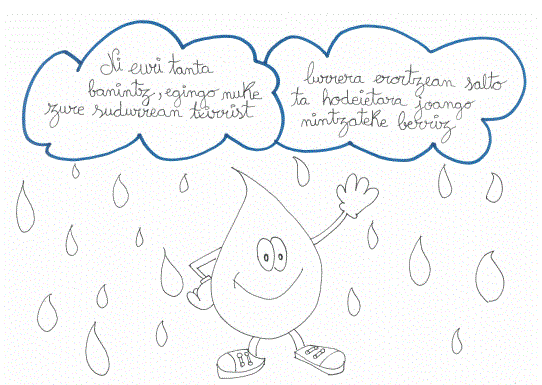 Ni euri tanta
banintz, egingo nuke
zure sudurrean txirrist
lurrera erortzean salto
ta hodeietara joango
nintzateke berriz